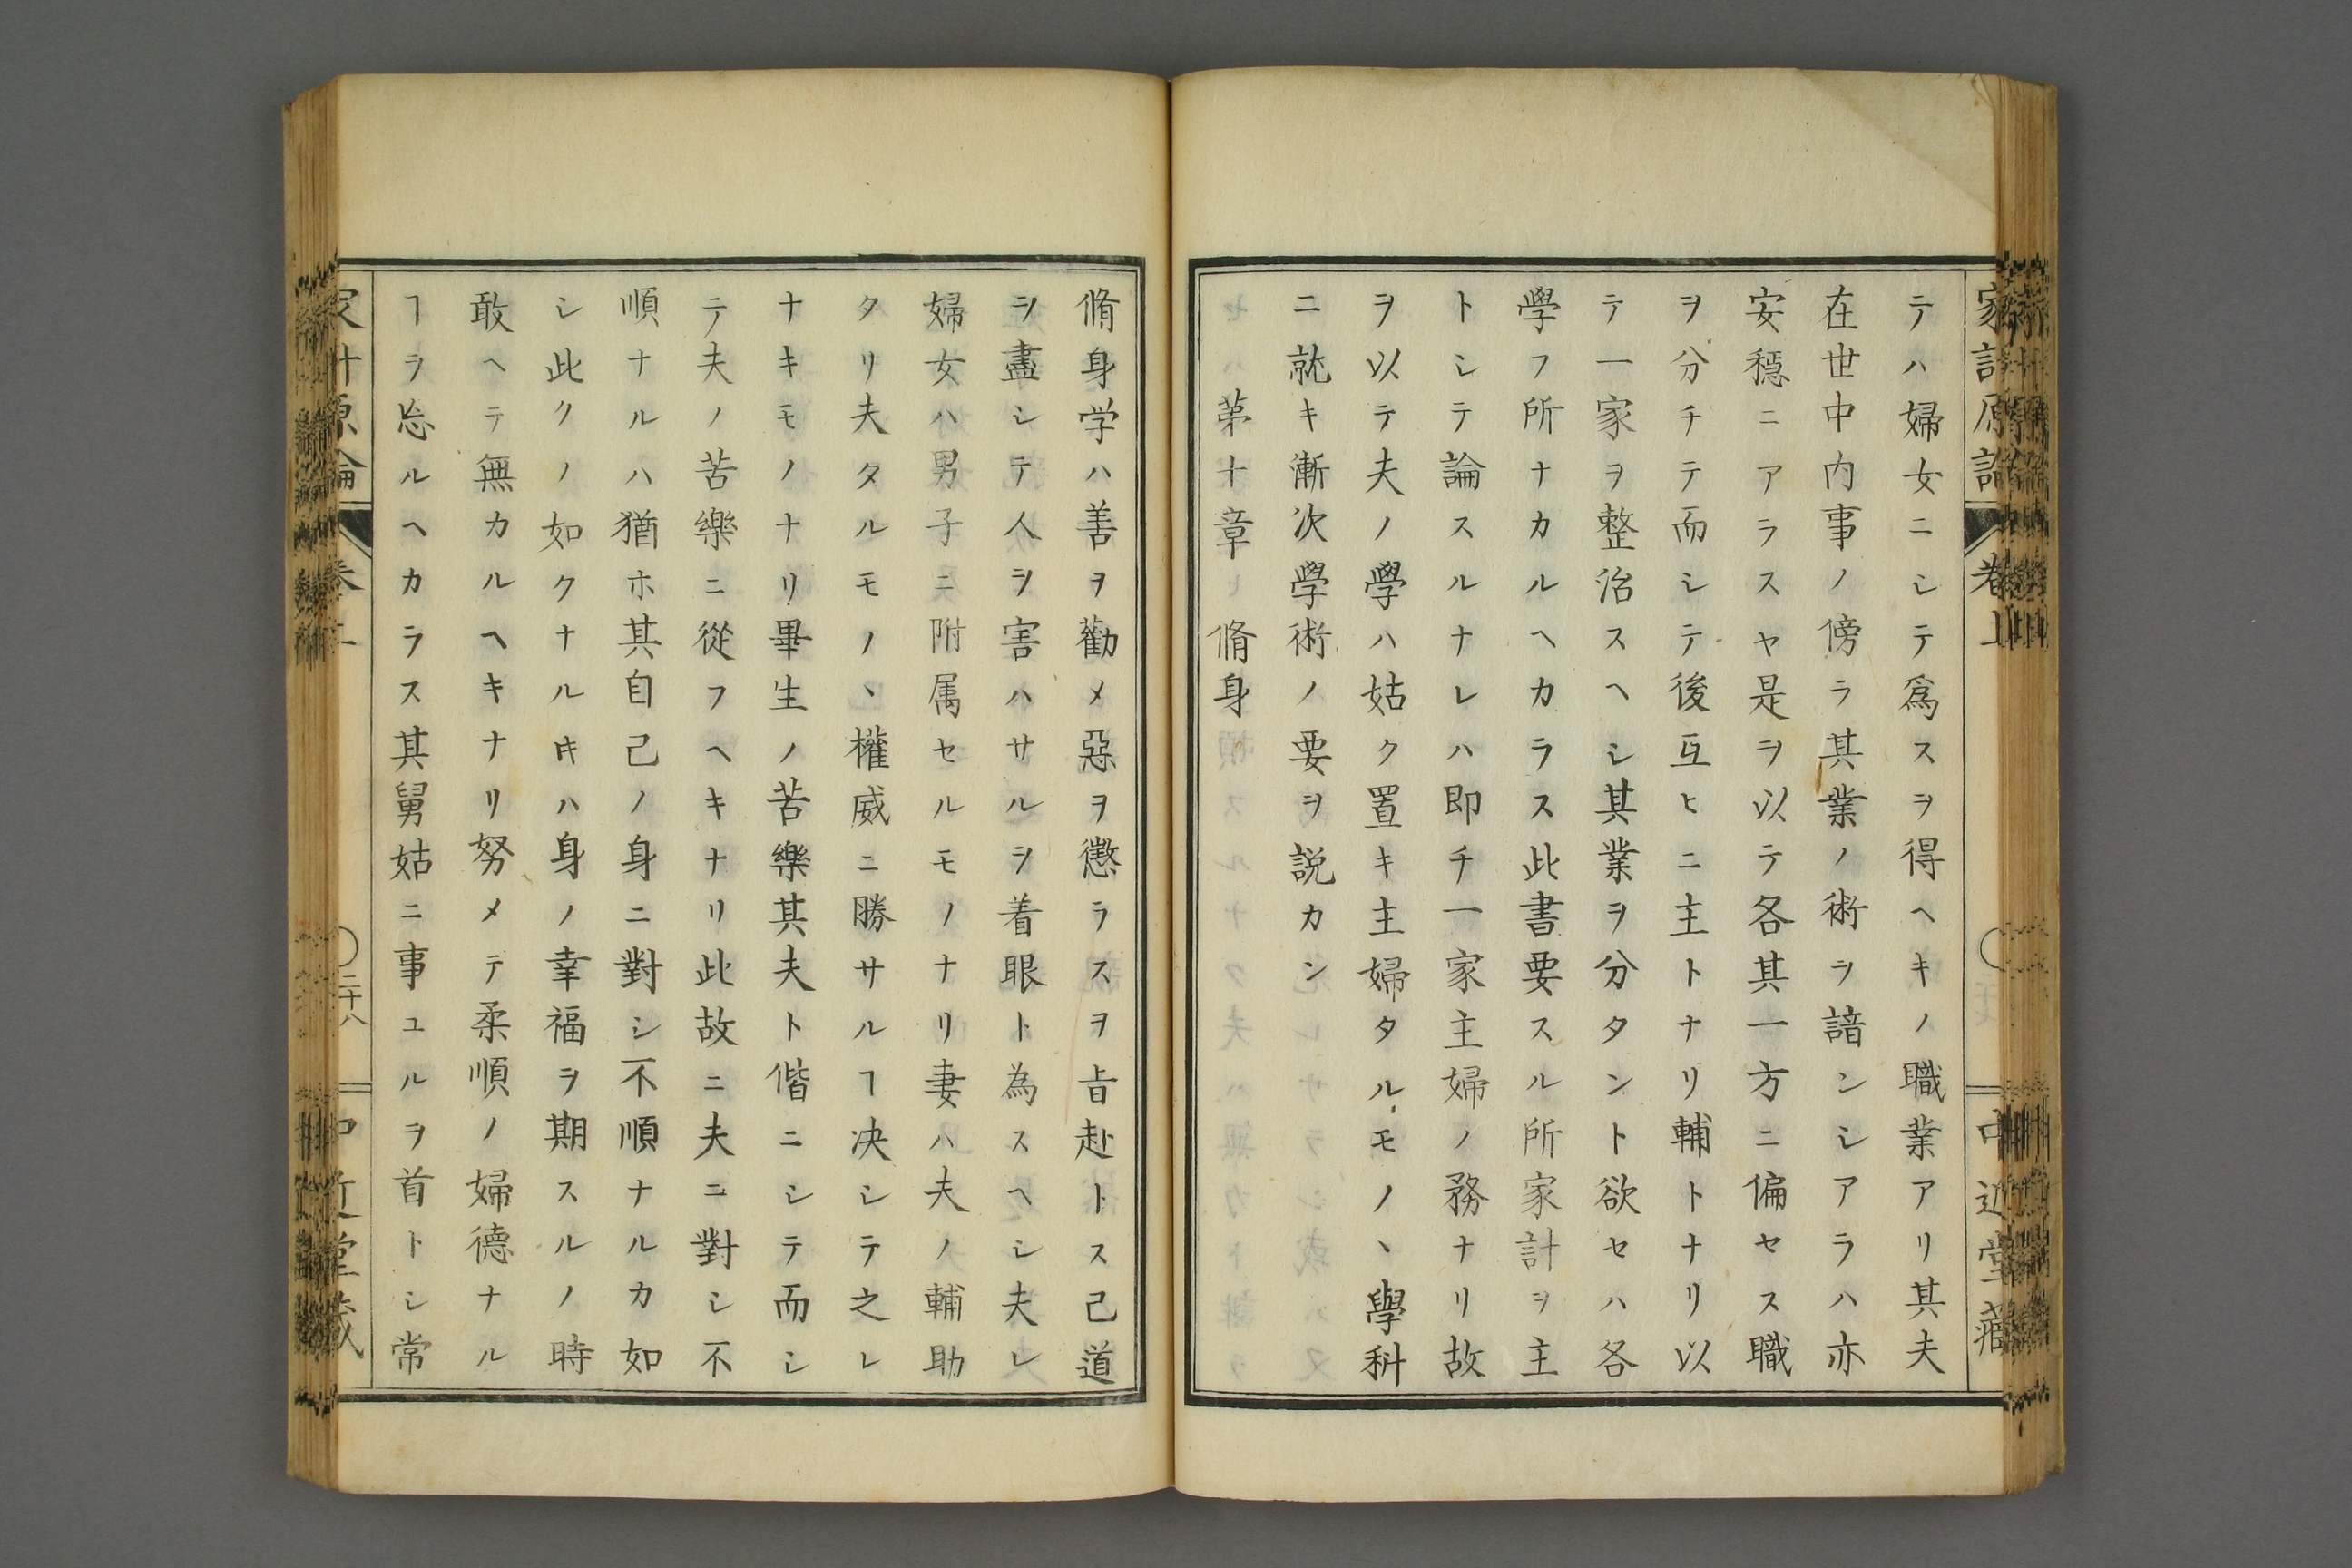 テハ婦女ニシテ爲スヲ得ヘキノ職業アリ其夫
在世中内事ノ傍ラ其業ノ術ヲ諳ンシアラハ亦
安穏ニアラスヤ是ヲ以テ各其一方ニ偏セス職
ヲ分チテ而シテ後互ヒニ主トナリ輔トナリ以
テ一家ヲ整治スヘシ其業ヲ分タント欲セハ各
學フ所ナカルヘカラス此書要スル所家計ヲ主
トシテ論スルナレハ即チ一家主婦ノ務ナリ故
ヲ以テ夫ノ學ハ姑ク置キ主婦タルモノヽ學科
ニ就キ漸次學術ノ要ヲ説カン
第十章 脩身
脩身学ハ善ヲ勸メ惡ヲ懲ラスヲ㫖赴トス己道
ヲ盡シテ人ヲ害ハサルヲ着眼ト為スヘシ夫レ
婦女ハ男子ニ附属セルモノナリ妻ハ夫ノ輔助
タリ夫タルモノヽ權威ニ勝サルヿ决シテ之レ
ナキモノナリ畢生ノ苦樂其夫ト偕ニシテ而シ
テ夫ノ苦樂ニ從フヘキナリ此故ニ夫ニ對シ不
順ナルハ猶ホ其自己ノ身ニ對シ不順ナルカ如
シ此クノ如クナルキハ身ノ幸福ヲ期スルノ時
敢ヘテ無カルヘキナリ努メテ柔順ノ婦德ナル
ヿヲ忘ルヘカラス其舅姑ニ事ユルヲ首トシ常
家計原論
卷上
二十八
中近堂藏